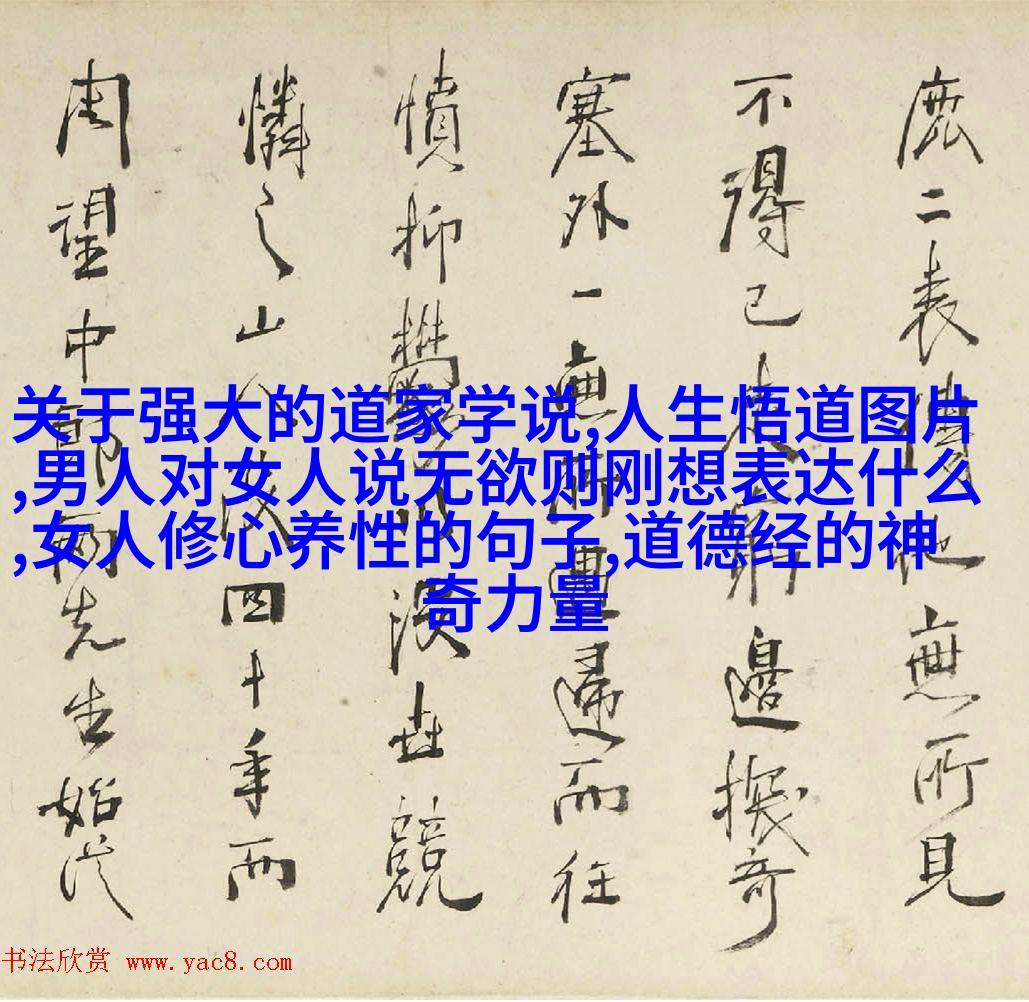 关于强大的道家学说,人生悟道图片
,男人对女人说无欲则刚想表达什么
,女人修心养性的句子,道德经的神
奇力量
鹿二表無所見
不得已窮邊奇
塞外一無所而往
憤抑世競
憐之山四十年而
周望中郎兩先生始
书法欣赏 www.yac8.com